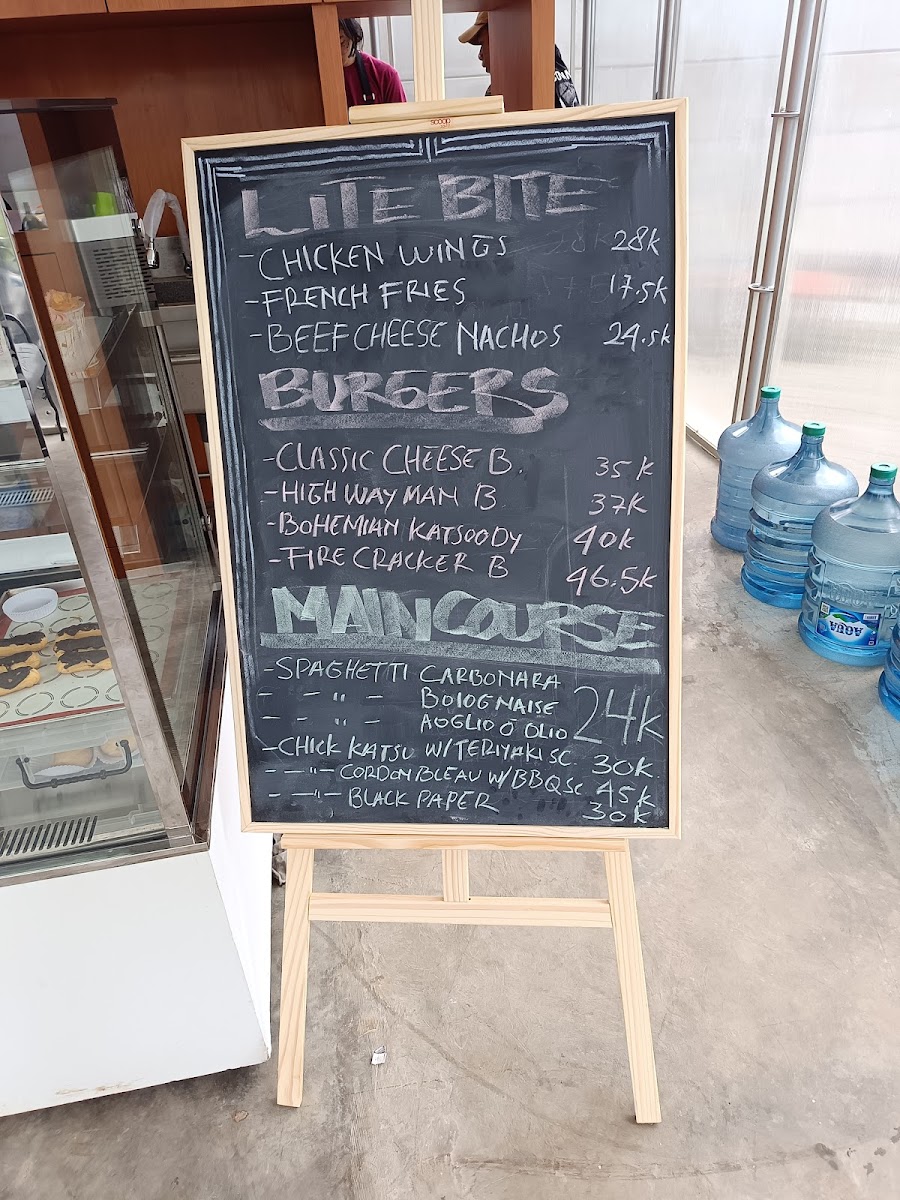 scoop
LITE BITE
- CHICKEN WINGS 28k
- FRENCH FRIES 17.5k
- BEEF CHEESE NACHOS 24.5k
BURGERS
- CLASSIC CHEESE B. 35k
- HIGH WAY MAN B 37k
- BOHEMIAN KATSOODY 40k
- FIRE CRACKER B 46.5k
MAIN COURSE
- SPAGHETTI CARBONARA
- - " - BOlOGNAISE 24k
- - " - AOGLIO Ó OLIO
- CHICK KATSU W/TERIYAKI SC 30k
- - " - CORDON BLEAU W/BBQ SC 45k
- - " - BLACK PAPER 30k
AQUA